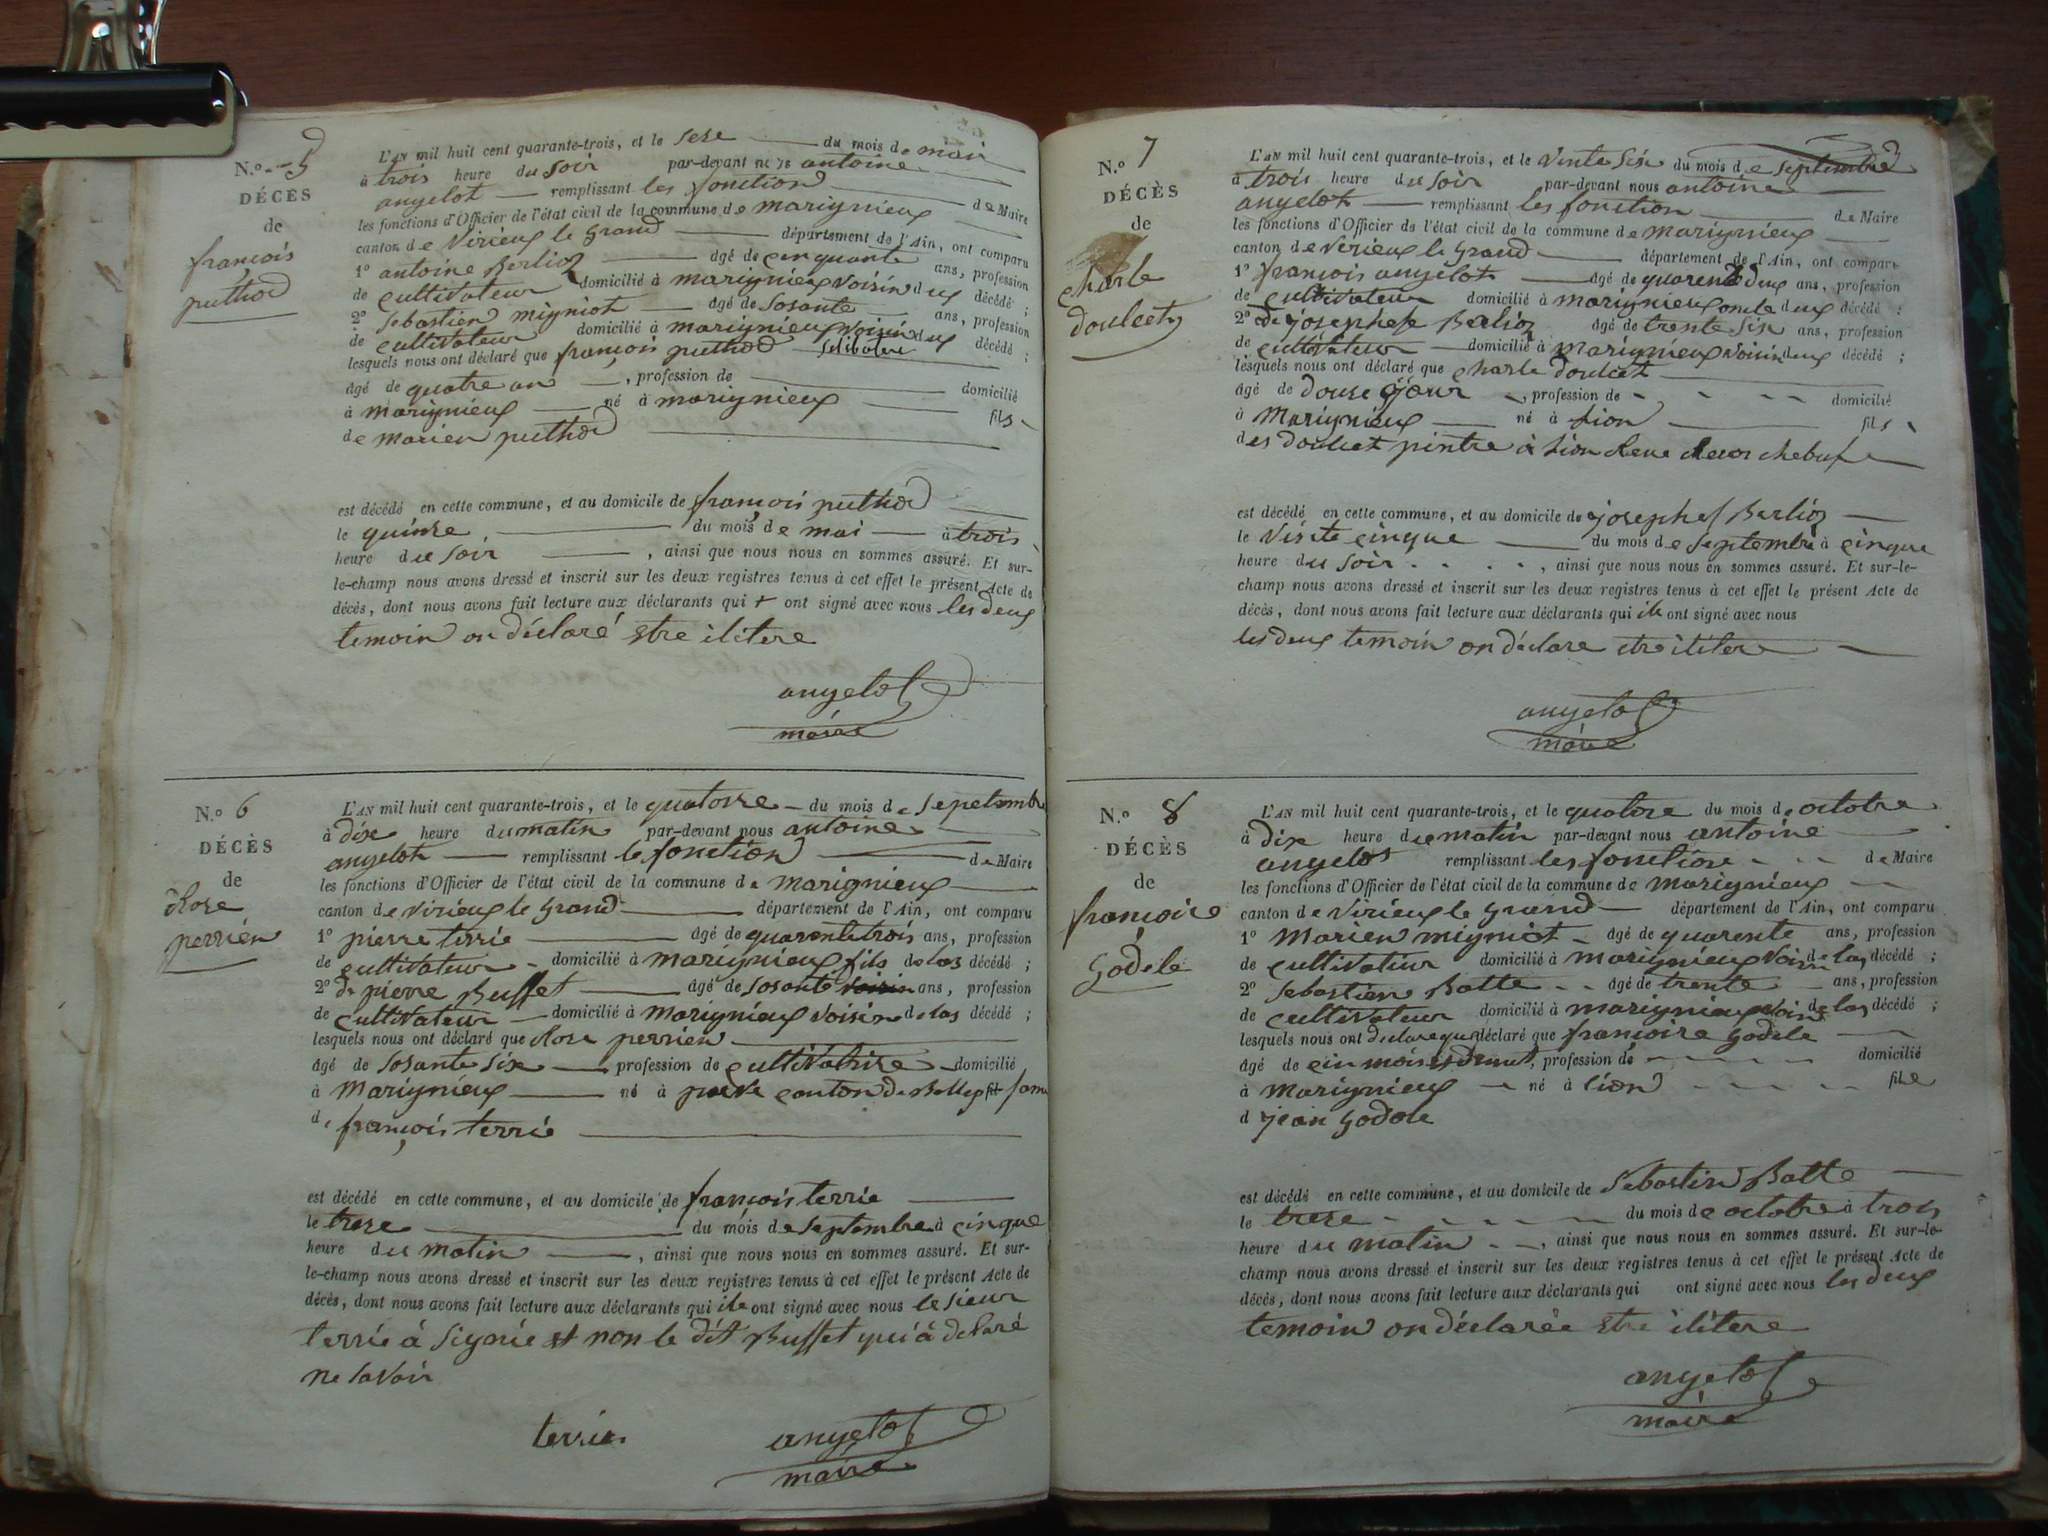 N.o 5
DÉCÈS
de
françois
puthod
L'AN mil huit cent quarante-trois, et le sese du mois de mai
à trois heure du soir par-devant nous antoine
angelot remplissant les fonction de Maire
les fonctions d'Officier de l'état civil de la commune de marignieux
canton de Virieux le Grand département de l'Ain, ont comparu
1º antoine Berlioz âgé de cinquante ans, profession
de cultivateur domicilié à marignieux voisin deux décédé ;
2º Sebastien migniot âgé de sosante ans, profession
de cultivateur domicilié à marignieux voisin deux décédé ;
lesquels nous ont déclaré que françois puthod selibatere
âgé de quatre an , profession de domicilié
à marignieux né à marignieux fils
de marien puthod
est décédé en cette commune, et au domicile de françois puthod
le quinse du mois de mai à trois
heure du soir , ainsi que nous nous en sommes assuré. Et sur-
le-champ nous avons dressé et inscrit sur les deux registres tenus à cet effet le présent Acte de
décès, dont nous avons fait lecture aux déclarants qui + ont signé avec nous les deux
temoin on déclaré etre ilitere
angelot
maire
N.o 6
DÉCÈS
de
Rose
perrien
L'AN mil huit cent quarante-trois, et le quatorse du mois de sepetembre
à dix heure du matin par-devant nous antoine
angelot remplissant le fonction de Maire
les fonctions d'Officier de l'état civil de la commune de marignieux
canton de Virieux le Grand département de l'Ain, ont comparu
1º pierre terrie âgé de quarentetrois ans, profession
de cultivateur domicilié à marignieux fils de las décédé ;
2º de pierre Buffet âgé de sosante voisin ans, profession
de cultivateur domicilié à marignieux voisin de las décédé ;
lesquels nous ont déclaré que Rose perrien
âgé de sosante six profession de cultivatrise domicilié
à Marignieux né à canton de Belley fame
de françois terrié
est décédé en cette commune, et au domicile de françois terrie
le trese du mois de septembre à cinque
heure du matin , ainsi que nous nous en sommes assuré. Et sur-
le-champ nous avons dressé et inscrit sur les deux registres tenus à cet effet le présent Acte de
décès, dont nous avons fait lecture aux déclarants qui ils ont signé avec nous le sieur
terrié à signié et non le dit Buffet qui à declaré
ne savoir
terrier
angelot
maire
N.o 7
DÉCÈS
de
charle
doulcet
L'AN mil huit cent quarante-trois, et le vinte six du mois de septembre
à trois heure du soir par-devant nous antoine
angelot remplissant les fonction de Maire
les fonctions d'Officier de l'état civil de la commune de marignieux
canton de Virieux le Grand département de l'Ain, ont comparu
1º françois angelot âgé de quarente deux ans, profession
de cultivateur domicilié à marignieux deux décédé ;
2º de josephe Berlioz âgé de trente six ans, profession
de cultivateur domicilié à marignieux voisin deux décédé ;
lesquels nous ont déclaré que charle doulcet
âgé de douse jour profession de domicilié
à Marignieux né à Lion fils
des doulcet pintre à Lion
est décédé en cette commune, et au domicile de josephe Berlioz
le vinte cinque du mois de septembre à cinque
heure du soir , ainsi que nous nous en sommes assuré. Et sur-le-
champ nous avons dressé et inscrit sur les deux registres tenus à cet effet le présent Acte de
décès, dont nous avons fait lecture aux déclarants qui ils ont signé avec nous
les deux temoin on déclare etre ilitere
angelot
maire
N.o 8
DÉCÈS
de
françoise
Godele
L'AN mil huit cent quarante-trois, et le quatorse du mois de octobre
à dix heure du matin par-devant nous antoine
angelot remplissant les fonctions de Maire
les fonctions d'Officier de l'état civil de la commune de marignieux
canton de Virieux le Grand département de l'Ain, ont comparu
1º Marien migniot âgé de quarente ans, profession
de cultivateur domicilié à marignieux voisin de las décédé ;
2º Sebastien Batte âgé de trente ans, profession
de cultivateur domicilié à marignieux voisin de las décédé ;
lesquels nous ont déclaré que françoise Godele
âgé de cin mois , profession de domicilié
à marignieux né à lion file
d jean Godore
est décédé en cette commune, et au domicile de Sebastien Batte
le trese du mois de octobre à trois
heure du matin , ainsi que nous nous en sommes assuré. Et sur-le-
champ nous avons dressé et inscrit sur les deux registres tenus à cet effet le présent Acte de
décès, dont nous avons fait lecture aux déclarants qui ont signé avec nous les deux
temoin on déclarée etre ilitere
angelot
maire